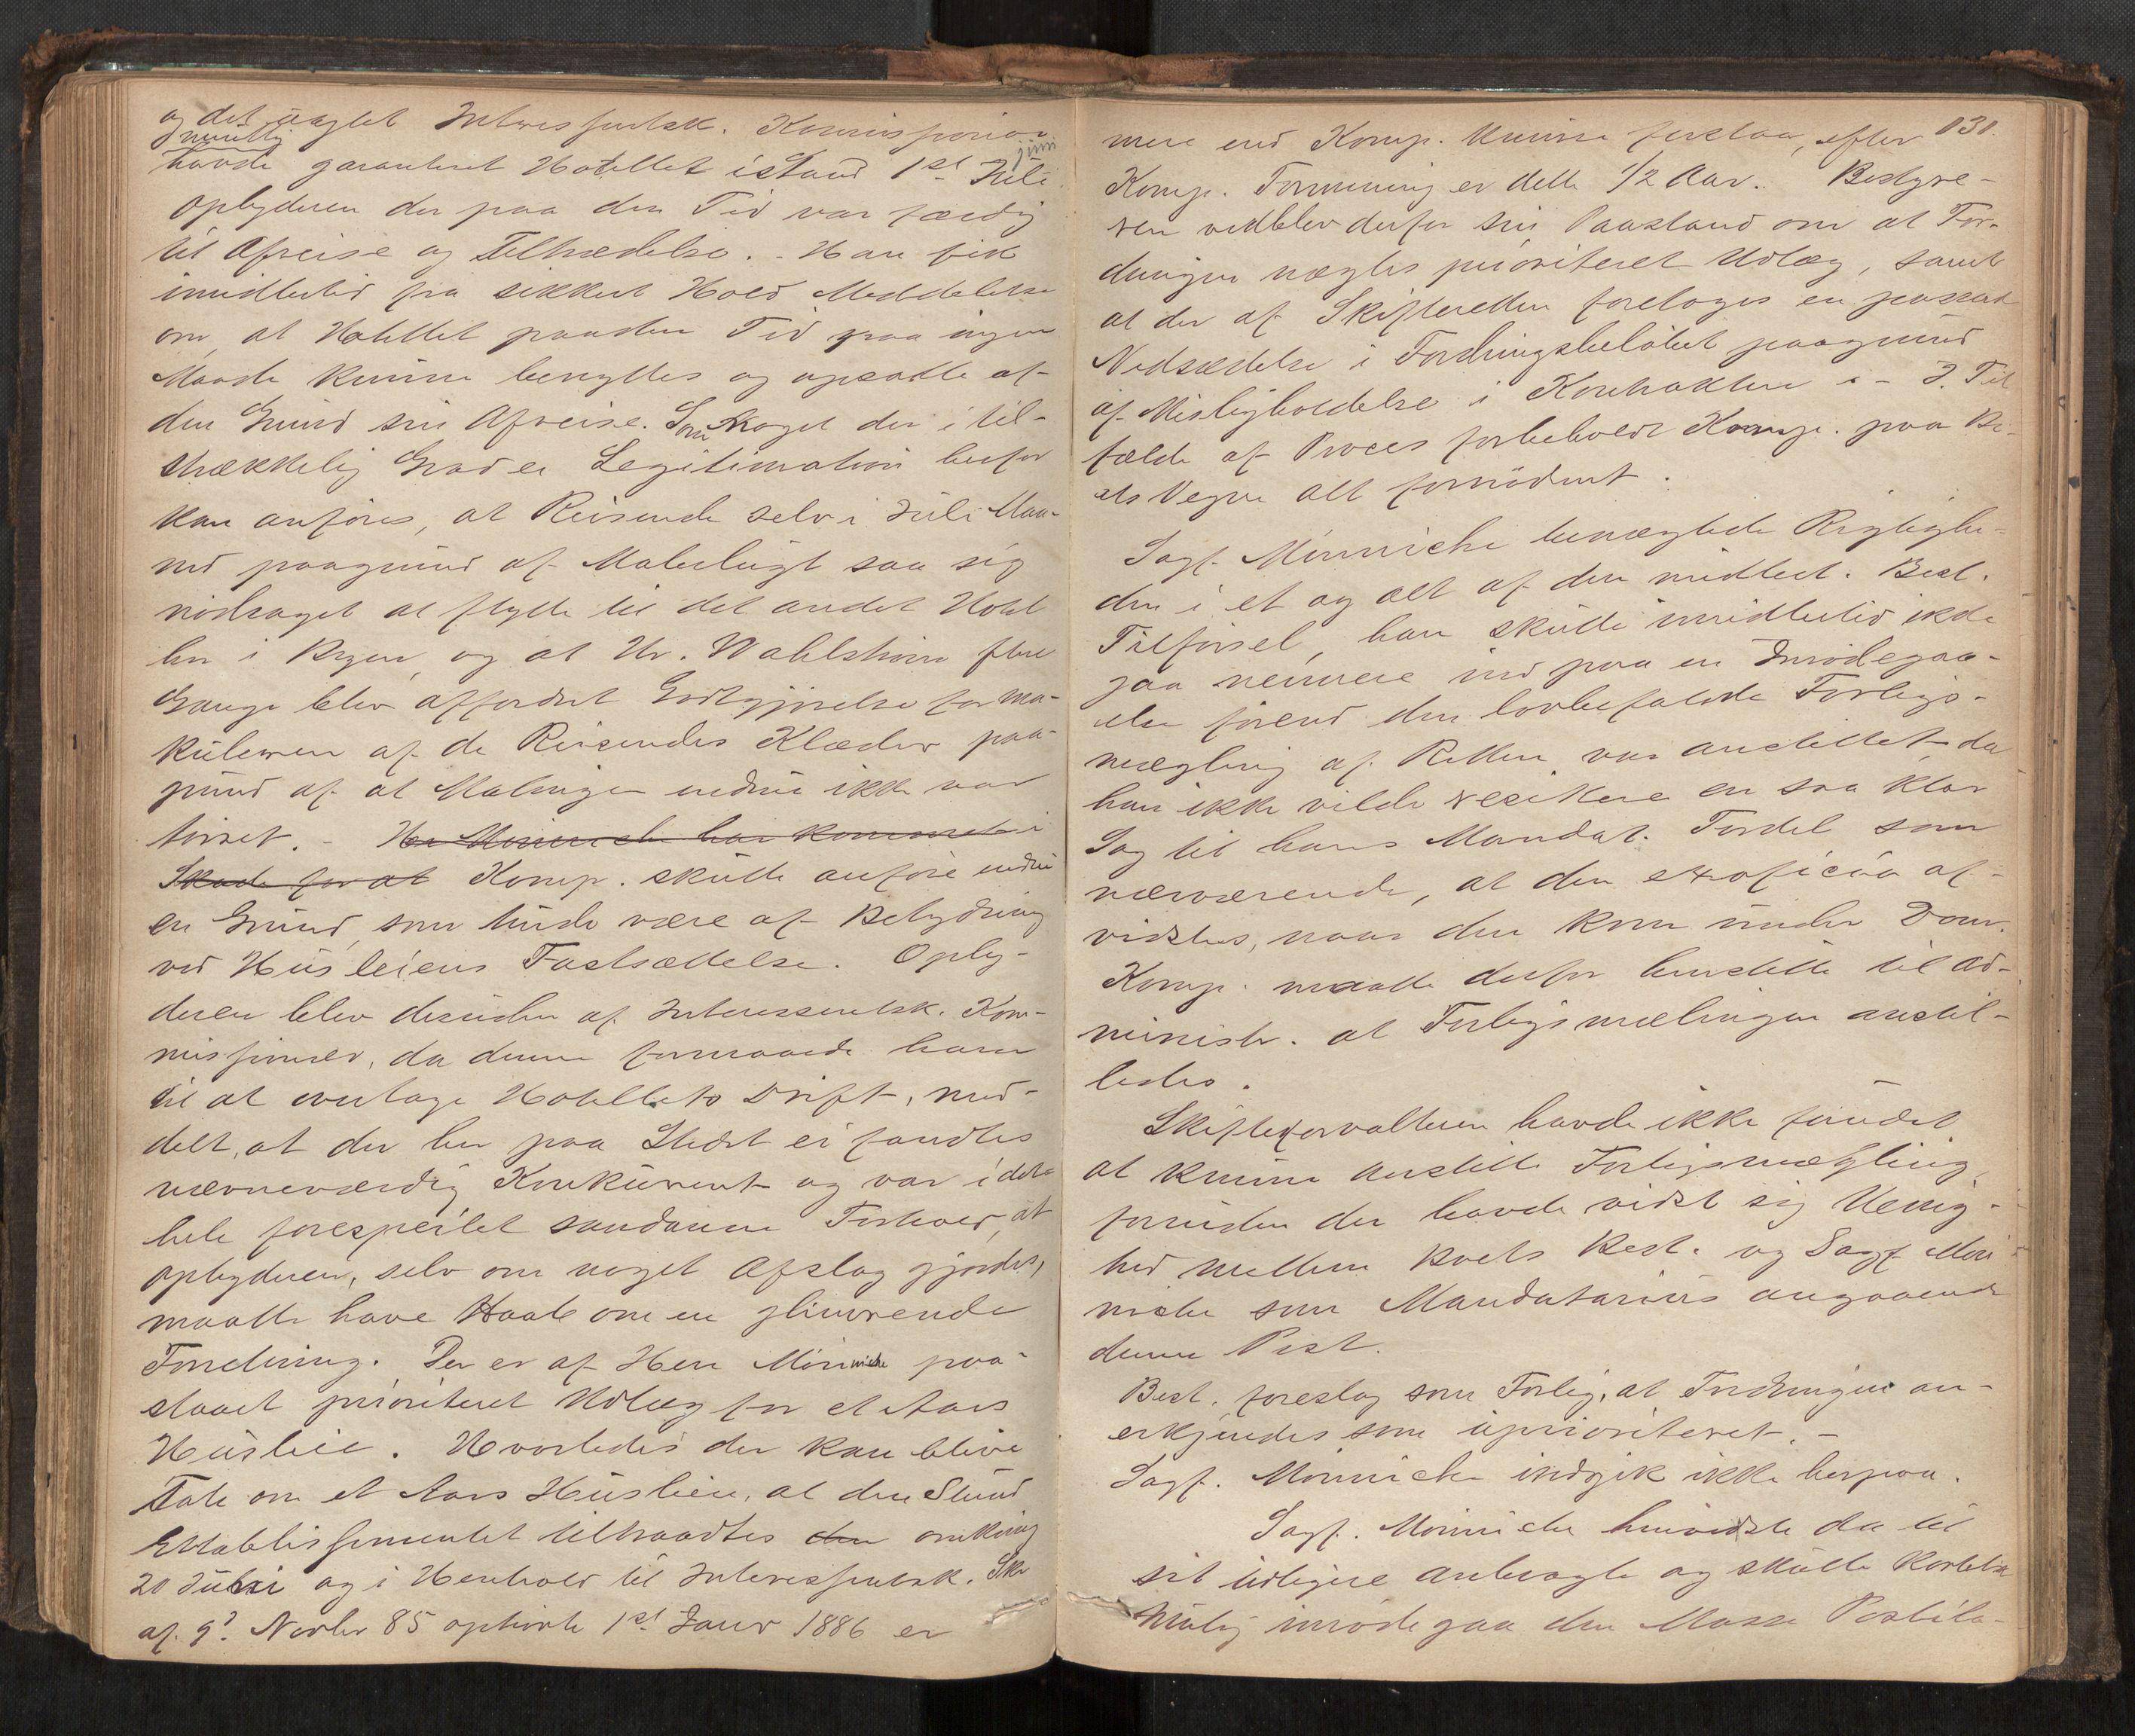 og det uagtet Interessentsk. Kommissionær
mundtlig
havde garanteret Hotellet istand 1st Juli
juni
Opbyderen der paa den Tid var færdig
til Afreise og Tiltrædelse. - Han fik
imidlertid fra sikkert Hold Meddelelse
om, at Hotellet paa den Tid paa ingen
Maade kunne benyttes og opsatte af
den Grund sin Afreise. Som Noget der i til-
strækkelig Grad er Legitimation herfor
kan anføres, at Reisende selv i Juli Maa-
ned paagrund af Malerlugt saa sig
nødsaget at flytte til det andet Hotel
her i Byen, og at Hr. Wahlstrøm flere
Gange blev affordret Godtgjørelse for ma-
kuleren af de Reisendes Klæder paa-
grund af at Malingen endnu ikke var
tørret. - Hr Minniche har kommet i
Skade for at Komp. skulde anføre endnu
en Grund, som turde være af Betydning
ved Husleiens Fastsættelse. Opby-
deren blev desuden af Interessentsk. Kom-
missionær, da denne formaaede ham
til at overtage Hotellets Drift, med-
delt, at der her paa Stedet ei fandtes
nævneværdig Konkurent og var i det
hele forespeilet saadanne Forhold, at
Opbyderen, selv om noget Afslag gjordes,
maatte have Haab om en glimrende
Forretning. Der er af Herr Minniche paa-
staaet prioriteret Udlæg for et Aars
Husleie. Hvorledes der kan blive
Tale om et Aars Husleie, at den Stund
Etablissementet tiltraadtes den omkring
20 Juli og i Henhold til Interessentsk. Skr
af 9d Novbr 85 ophørte 1st Janr 1886 er
131.
mere end Komp. kunne forstaa, efter
Komp. Formening er dette 1/2 Aar. Bestyre-
ren vedblev derfor sin Paastand om at For-
dringen nægtes prioriteret Udlæg, samt
at der af Skifteretten foretages en passende
Nedsættelse i Fordringsbeløbet paagrund
af Misligholdelse i Kontrakten - I Til
fælde af Proces forbeholdt Komp. paa Bo-
ets Vegne alt fornødent.
Sagf. Minniche benægtede Rigtighe-
den i et og alt af den meddelt. Best.
Tilførsel, han skulde imidlertid ikke
gaa nærmere ind paa en Imødegaa-
else førend den lovbefalede Forligs-
mægling af Retten var anstillet da
han ikke vilde resikere en saa klar
Sag til hans Mandat. Fordel som
nærværende, at den exoficio af-
vistes, naar den kom under Dom.
Komp. maatte derfor henstille til Ad-
ministr. at Forligsmælingen anstil-
ledes.
Skifteforvalteren havde ikke fundet
at kunne anstille Forligsmægling,
forinden der havde vidst sig Uenig-
hed mellem Boets Best. og Sagf Min
niche som Mandatarius angaaende
denne Post.
Best. foreslog som Forlig, at Fordringen an-
erkjendes som uprioriteret. -
Sagf. Minniche indgik ikke herpaa.
Sagf. Minniche henviste da til
sit tidligere anbragte og skulde kortelig
imødegaa den Masse Postula-